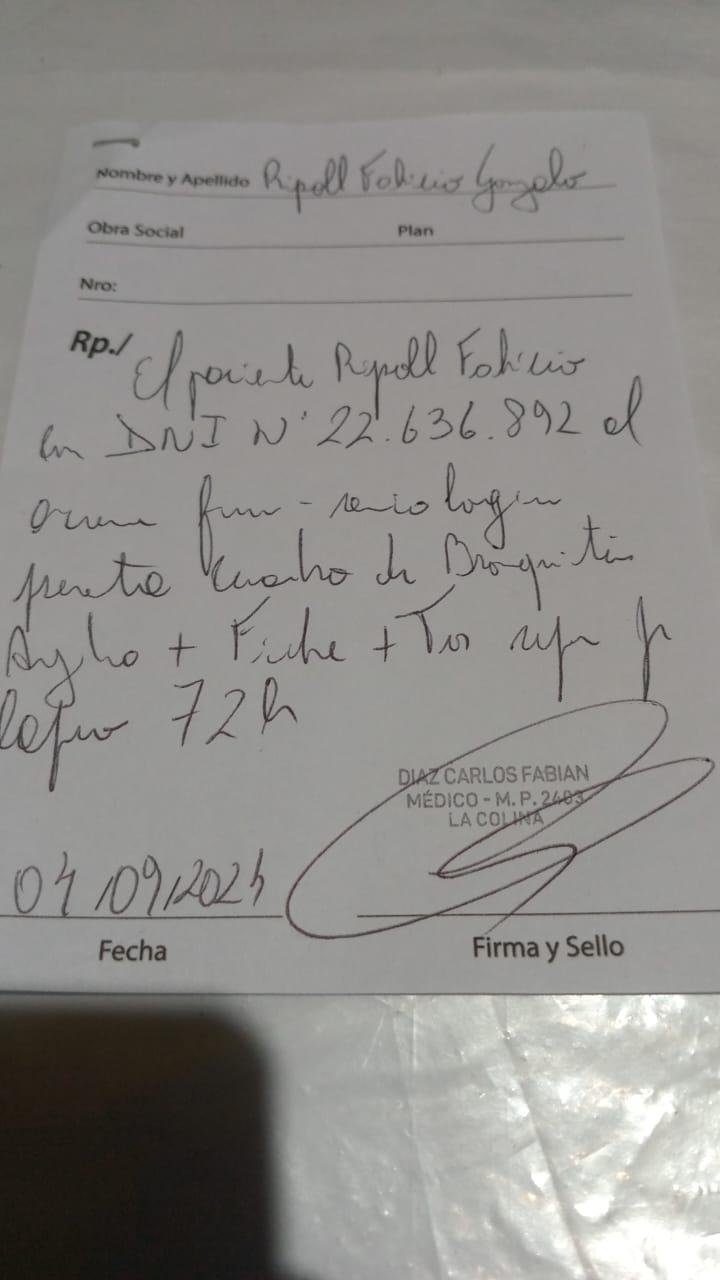 Nombre y Apellido Ripoll Fabricio Gonzalo
Obra Social Plan
Nro:
Rp./ El paciente Ripoll Fabricio
con DNI N° 22.636.892 al
presenta cuadro de Bronquitis
+ Fiebre + Tos
72h
DIAZ CARLOS FABIAN
MÉDICO - M. P. 2403
LA COLINA
04/09/2024
Fecha Firma y Sello